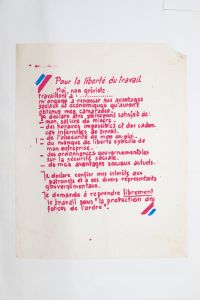 Pour la liberté du travail
Moi, non gréviste.
travaillant à ..../...........
m'engage à renoncer aux avantages
sociaux et économiques qu'auront
obtenus mes camarades.
Je déclare être pleinement satisfait de:
- mon salaire de misère.
- des horaires impossibles et des caden.
ces infernales de travail.
- de l'insécurité de mon emploi.
- du manque de liberté syndicale de
mon entreprise.
- des ordonnances gouvernementales
sur la sécurité sociale.
- de mes avantages sociaux actuels.
Je déclare confier mes intérêts aux
patronats et à ses divers représentants
gouvernementaux.
Je demande à reprendre librement
le travail sous "la protection des
forces de l'ordre".